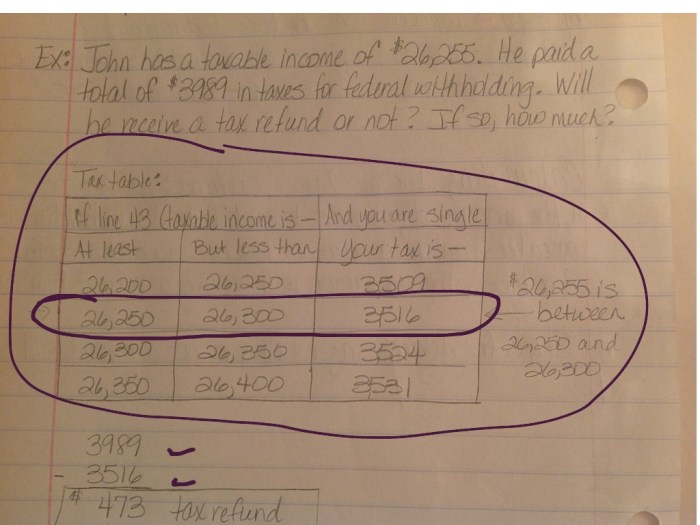 Ex: John has a taxable income of $26,255. He paid a
total of $3989 in taxes for federal withholding. Will
he receive a tax refund or not? If so, how much?
Tax table:
If line 43 (taxable income is— And you are single
At least But less than your tax is—
26,200 26,250 3509
26,250 26,300 3516
26,300 26,350 3524
26,350 26,400 3531
$26,255 is
between
26,250 and
26,300
3989
- 3516
$ 473 tax refund